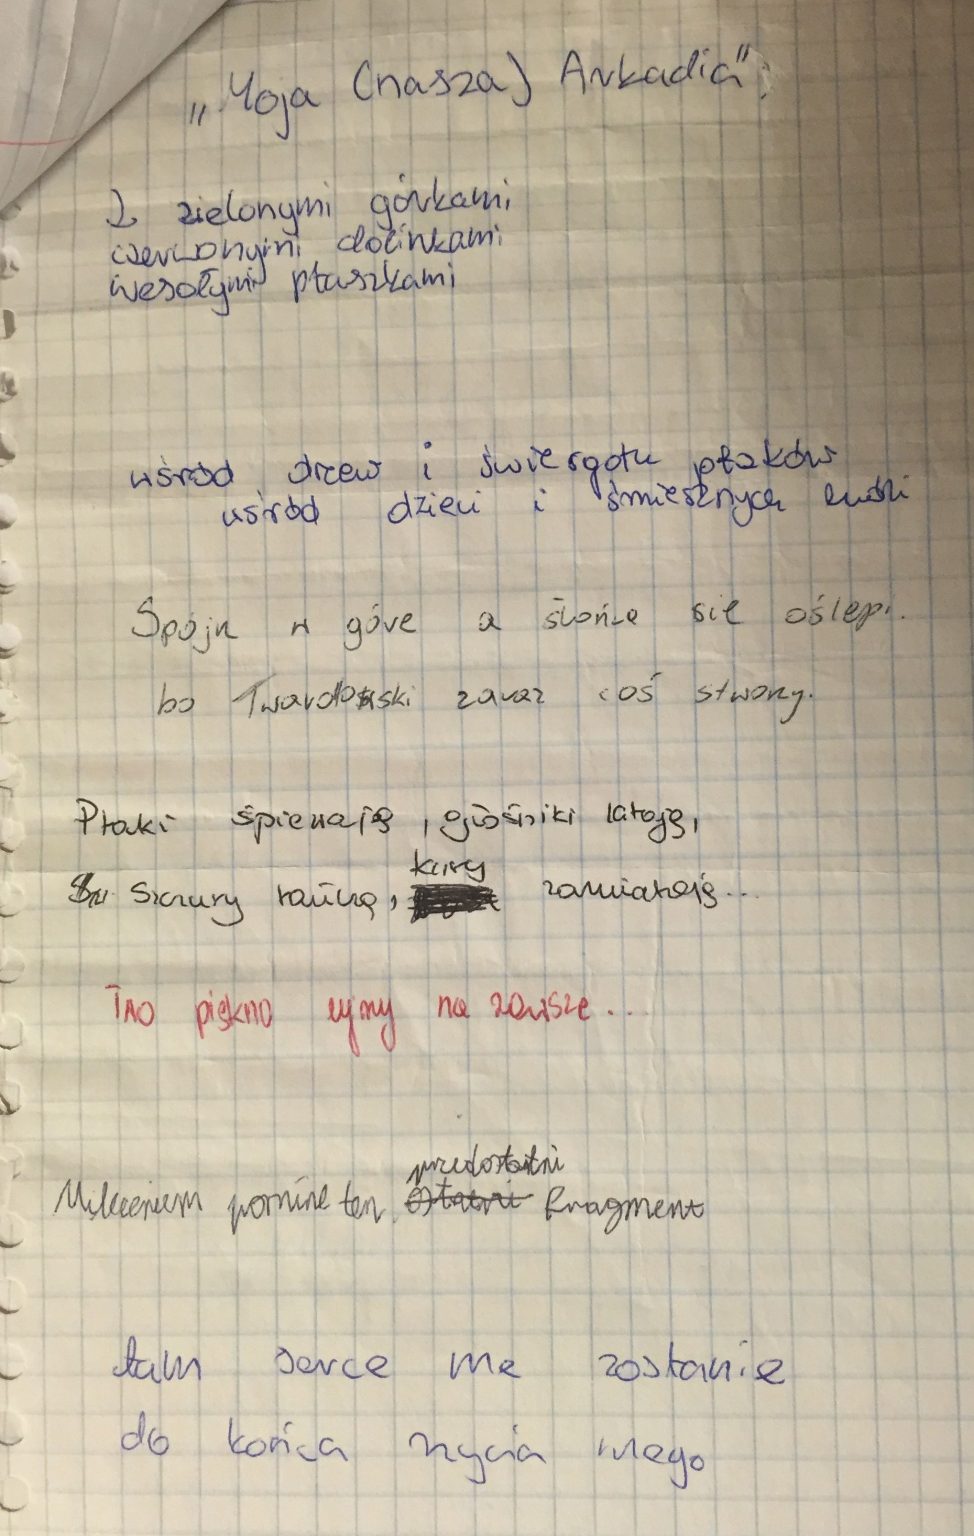 „Moja (nasza) Arkadia";
Z zielonymi górkami
czerwonymi dolinkami
wesołymi ptaszkami
wśród drzew i świergotu ptaków
wśród dzieci i śmiesznych ludzi
Spójn w góre a słońce sie oślepi.
bo Twardowski zaraz coś stworzy.
Ptaki śpiewają, głośniki latają,
Szczury tańczą, kury zamiatają...
piękno żyjmy na zawsze...
Milczeniem pomine ten przedostatni fragment
tam serce me zostanie
do końca rzycia mego